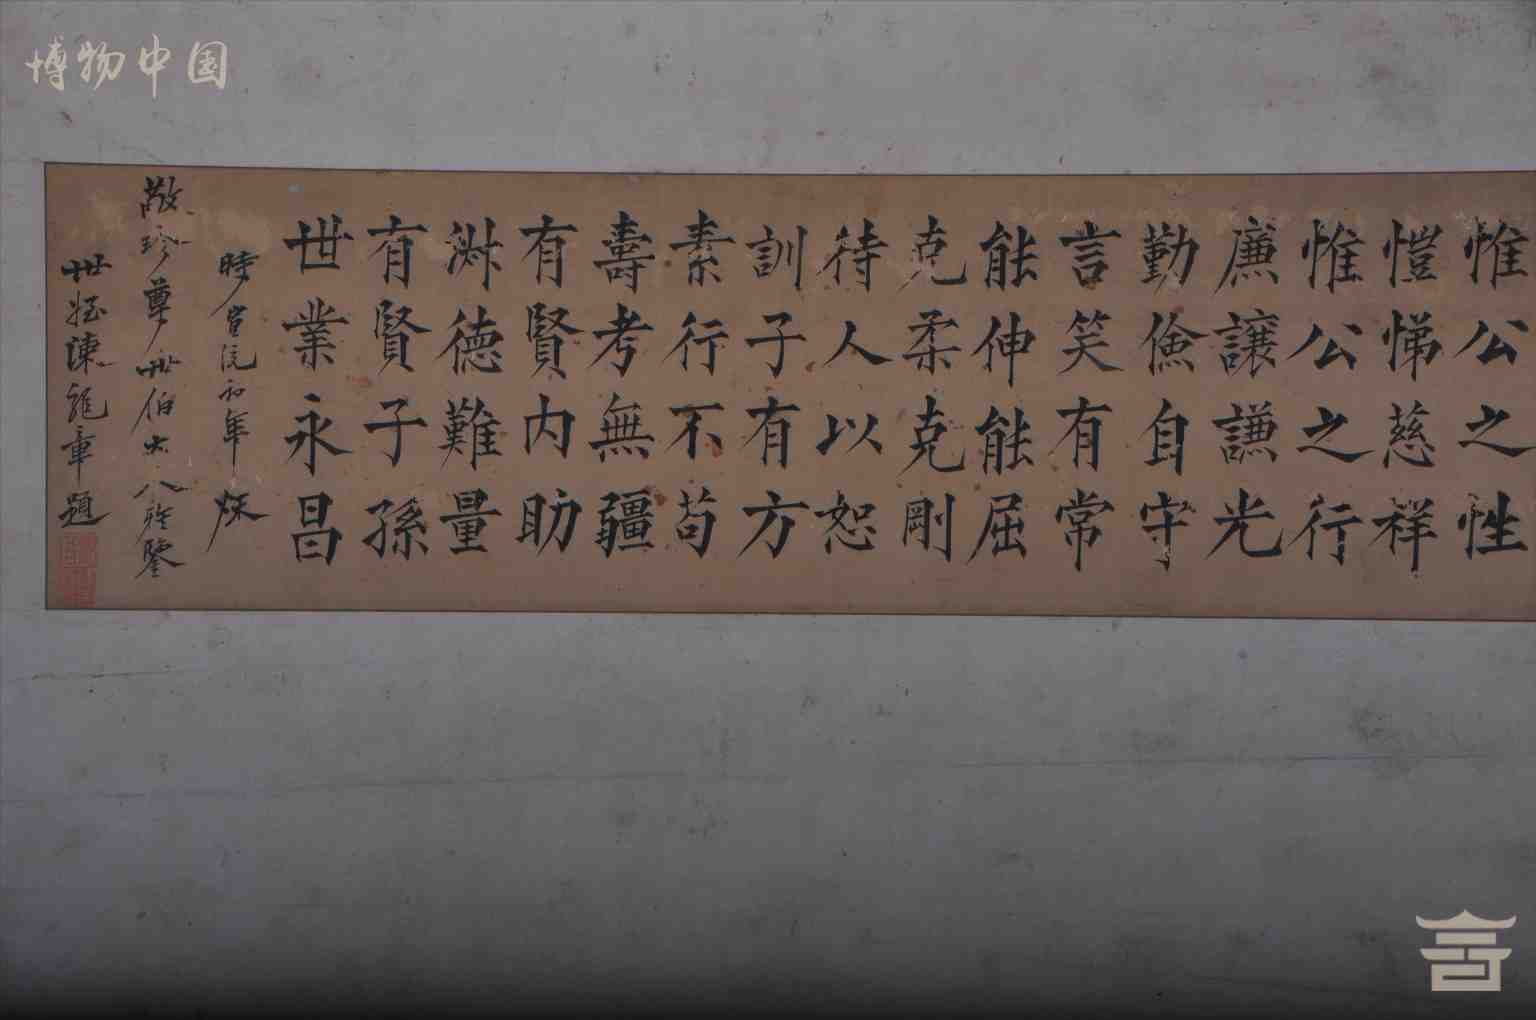 博物中国
惟公之性
愷悌慈祥
惟公之行
廉讓謙光
勤儉自守
言笑有常
能伸能屈
克柔克剛
待人以恕
訓子有方
素行不苟
壽考無疆
有賢内助
淑德難量
有賢子孫
世業永昌
時宣統初年秌
敬珍尊世伯大人雅鑒
世姪陳龍章題